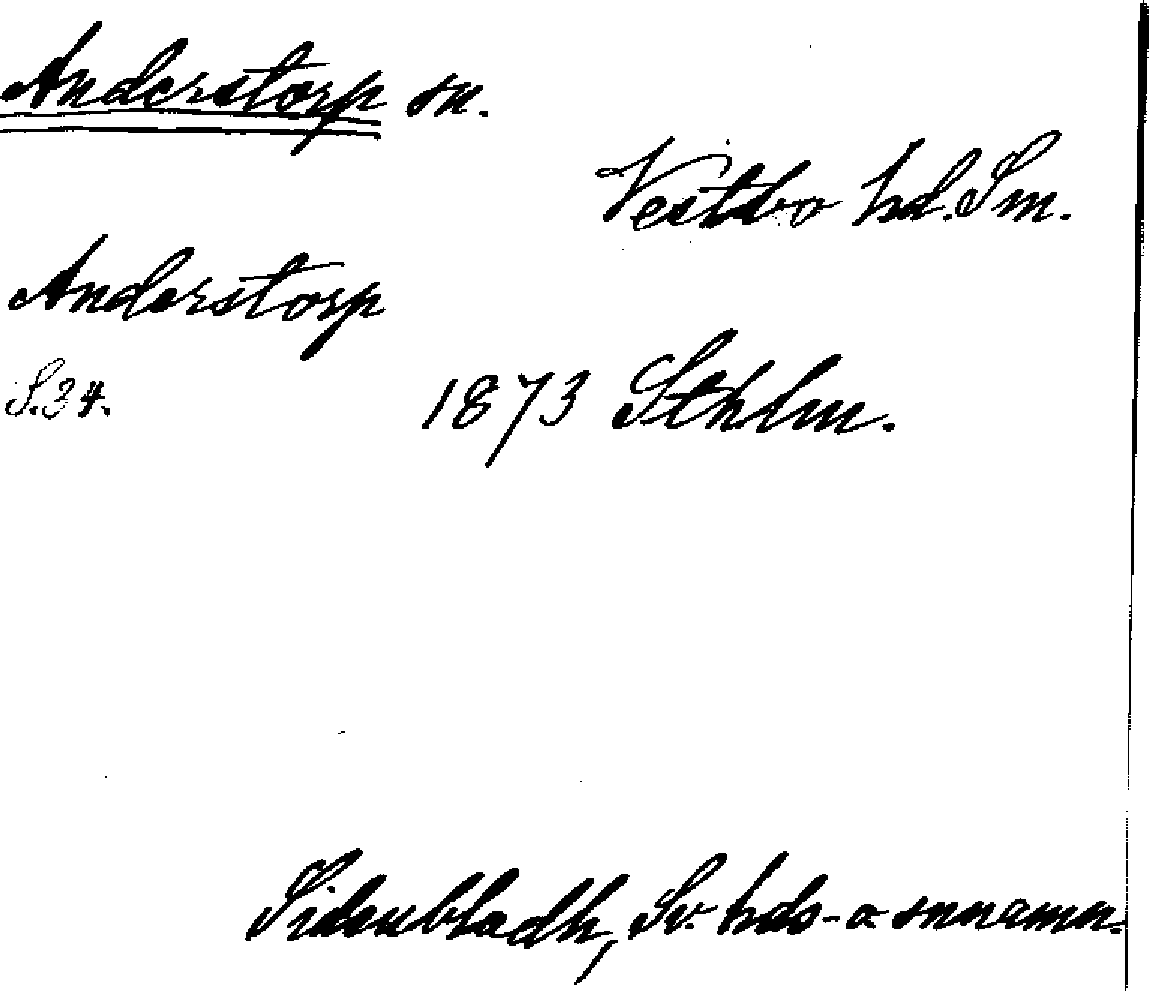 Anderstorp sn.
Vestbo hd. Sm.
Anderstorp
S. 34. 1873 Sthlm.
Sidenbladh, Sv. hds- o snnamn.